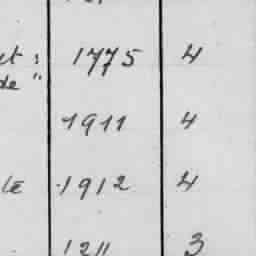 et : 1775 4
de "
1911 4
le 1912 4
1211 3